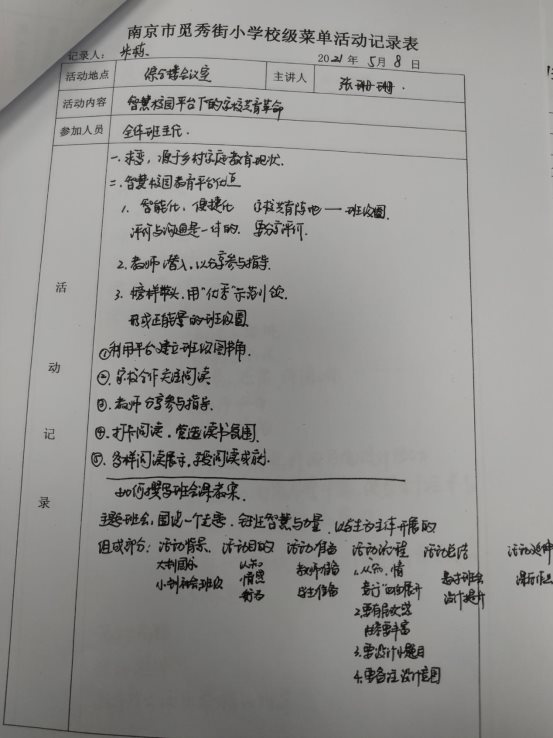 南京市觅秀街小学校级菜单活动记录表
记录人: 朱 2021 年 5 月 8 日
活动地点 综合楼会议室 主讲人 张珊珊.
活动内容 智慧校园平台下的家校共育革命
参加人员 全体班主任.
活动记录
一. 求变, 源于乡村家庭教育现状.
二. 智慧校园教育平台优点
1. 智能化, 便捷化 家校共育阵地——班级圈.
评价与沟通是一体的. 要分享评价.
2. 教师潜入, 以分享参与指导.
3. 榜样带头, 用“优秀”示范引领.
形成正能量的班级圈.
①利用平台, 建立班级图书角.
②. 家校合作关注阅读.
③. 教师分享参与指导.
④. 打卡阅读, 营造读书氛围.
⑤. 多样阅读展示, 提阅读成就.
如何撰写班会课教案.
主题班会, 围绕一个主题, 智慧与力量. 以学生为主体开展的
组成部分: 活动背景 活动目的 活动准备 活动流程 活动总结 活动延伸
大到国家 认知 教师准备 1. 从知, 情 基于班会 课后作业
小到班会班级 情感 学生准备 意行”四步展开 设计提升
行为 2. 要有层次
内容要丰富
3. 要设计小题目
4. 要备注设计意图